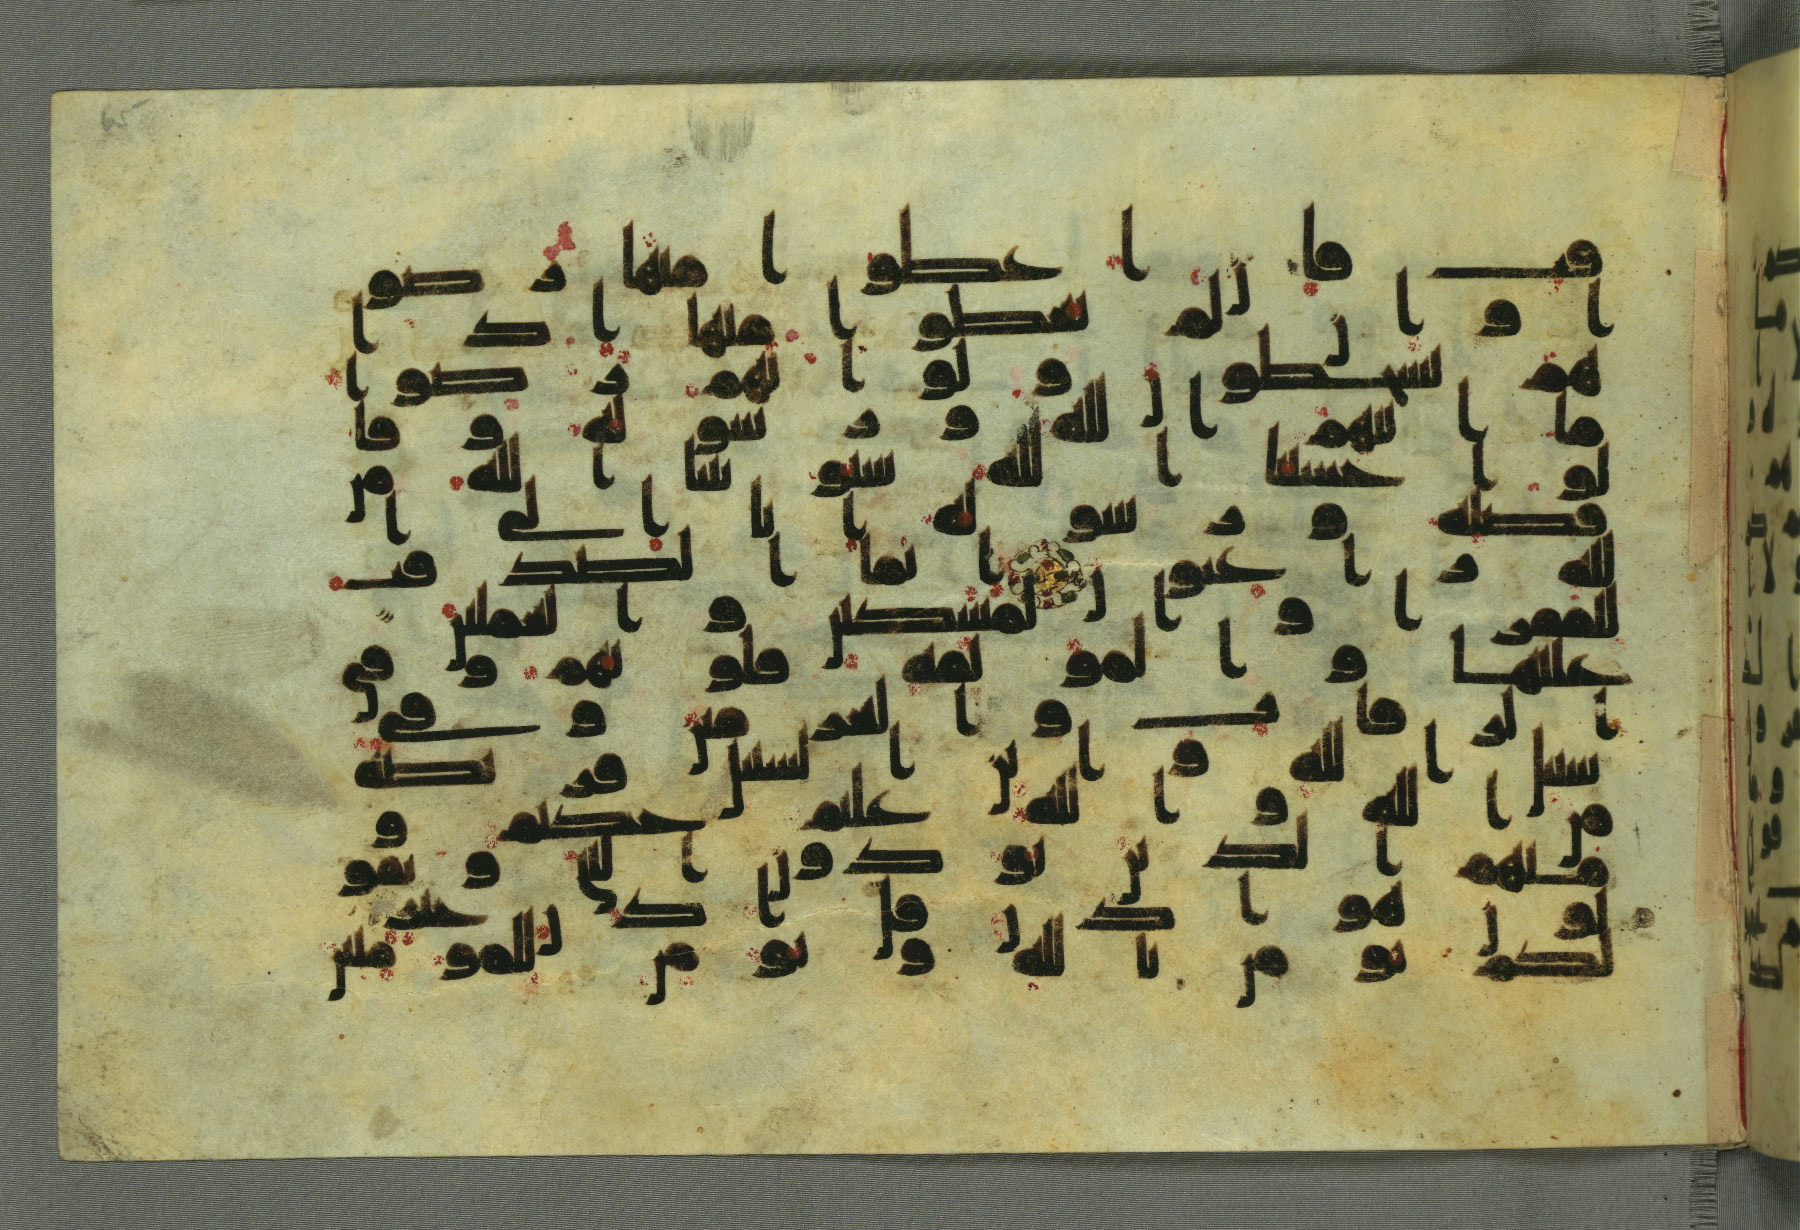 قت فان اعطوا منها رضو
ا وان لم يعطوا منها اذا
هم يسخطون ولو انهم رضوا
ما اتيهم الله ورسوله وقا
لوا حسبنا الله سيوتينا الله من
فضله ورسوله انا الى ا
لله راغبون انما الصدقت
للفقرا والمسكين والعملين
عليها والمولفه قلوبهم وفي
الرقاب والغرمين وفي
سبيل الله وابن السبيل فريضه
من الله والله عليم حكيم و
منهم الذين يوذون النبي ويقو
لون هو اذن قل اذن خير
لكم يومن بالله ويومن للمومنين